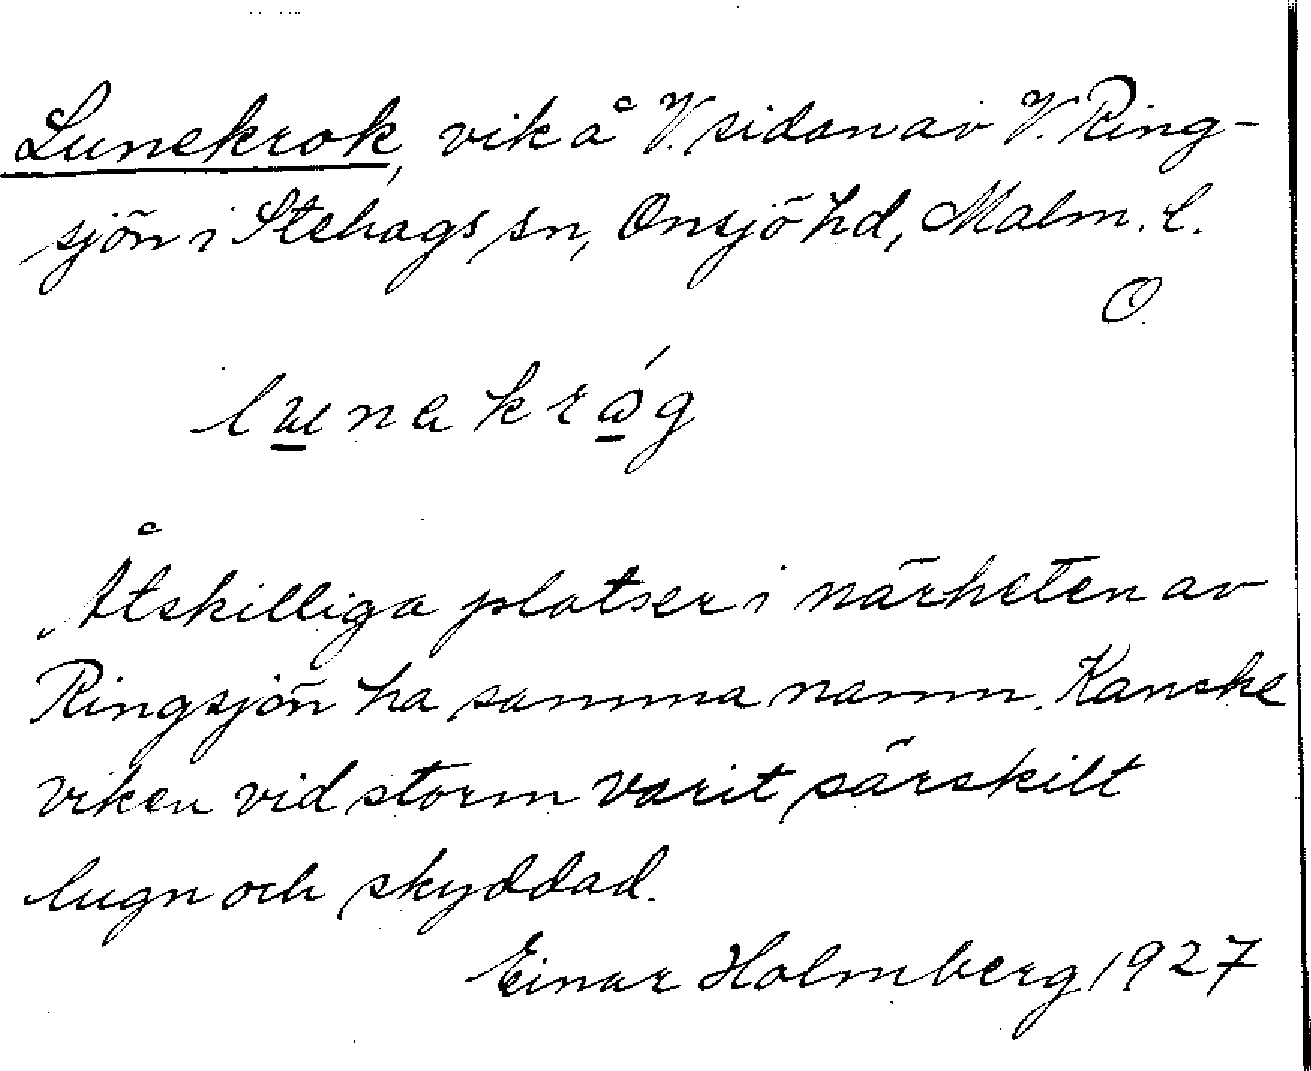 Lunekrok, vik å V. sidan av V. Ring-
sjön i Stehags sn, Onsjö hd, Malm. l.
O.
lunakróg
Åtskilliga platser i närheten av
Ringsjön ha samma namn. Kanske
viken vid storm varit särskilt
lugn och skyddad.
Einar Holmberg 1927